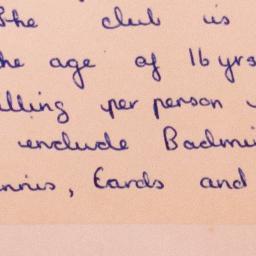 The club is
the age of 16 yrs
per person
include Badmi
Cards and